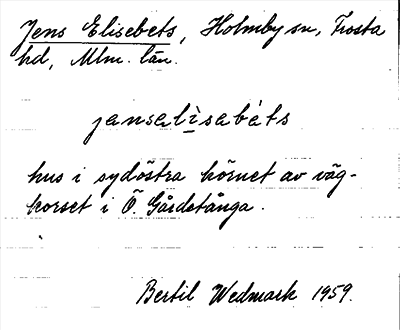 Jens Elisebets, Holmby sn, Frosta
hd, Mlm. län.
jensalìsabéts
hus i sydöstra hörnet av väg-
korset i Ö. Gårdstånga.
Bertil Wedmark 1959.